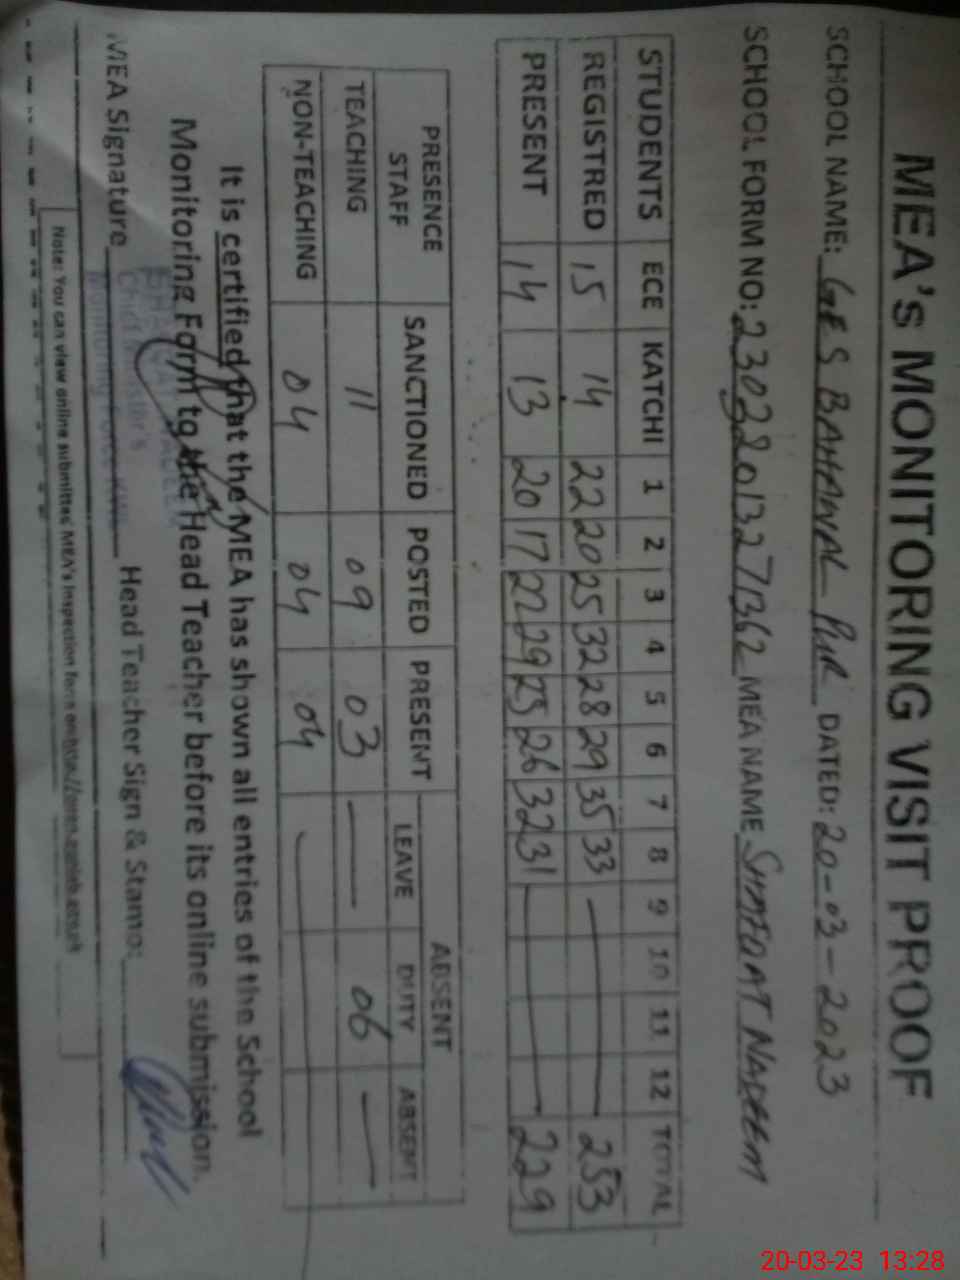 MEA's MONITORING VISIT PROOF
SCHOOL NAME: GES BAHAWAL PUR DATED: 20-03-2023
SCHOOL FORM NO: 230322013271362 MEA NAME SHAFQAT NADEEM
STUDENTS ECE KATCHI 1 2 3 4 5 6 7 8 9 10 11 12 TOTAL
REGISTRED 15 14 22 20 25 32 28 29 35 33 — 253
PRESENT 14 13 20 17 22 29 25 26 32 31 — 229
PRESENCE STAFF SANCTIONED POSTED PRESENT ABSENT
LEAVE DUTY ABSENT
TEACHING 11 09 03 — 06 —
NON-TEACHING 04 04 04 —
It is certified that the MEA has shown all entries of the School
Monitoring Form to the Head Teacher before its online submission.
MEA Signature Head Teacher Sign & Stamp:
Chief Minister's
Monitoring Force
Note: You can view online submitted MEA's Inspection form on
20-03-23 13:28